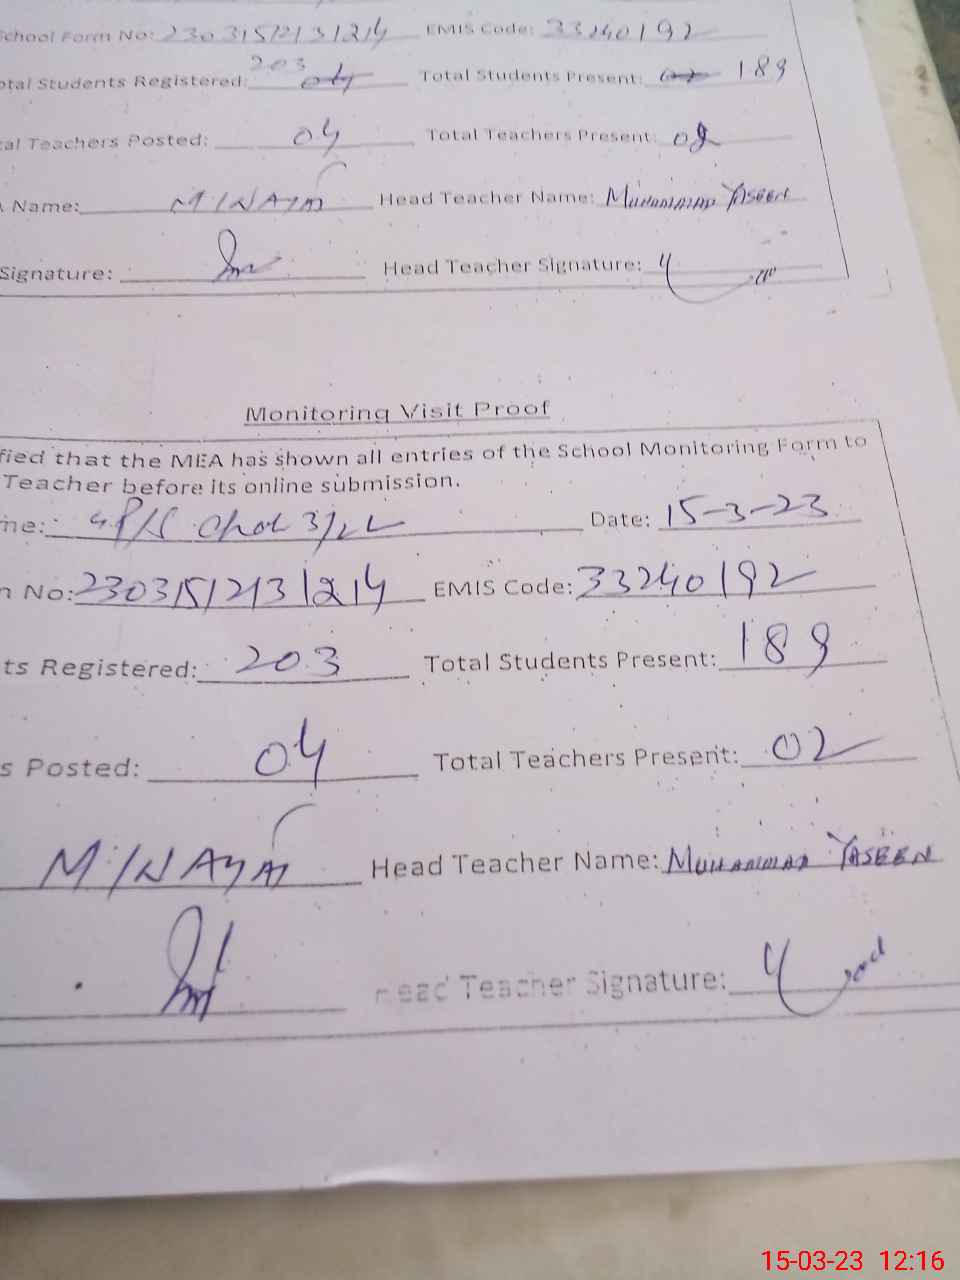 School Form No: 2303151213 1214 EMIS Code: 33240192
otal Students Registered: 203 04 Total Students Present: 189
al Teachers Posted: 04 Total Teachers Present: 02
A Name: M INAYAT Head Teacher Name: MUHAMMAD YASEEN
Signature: Head Teacher Signature:
Monitoring Visit Proof
fied that the MEA has shown all entries of the School Monitoring Form to
Teacher before its online submission.
me: GP/S Chak 3/2L Date: 15-3-23
n No: 2303151213 1214 EMIS Code: 33240192
ts Registered: 203 Total Students Present: 189
s Posted: 04 Total Teachers Present: 02
M INAYAT Head Teacher Name: MUHAMMAD YASEEN
Head Teacher Signature:
15-03-23 12:16